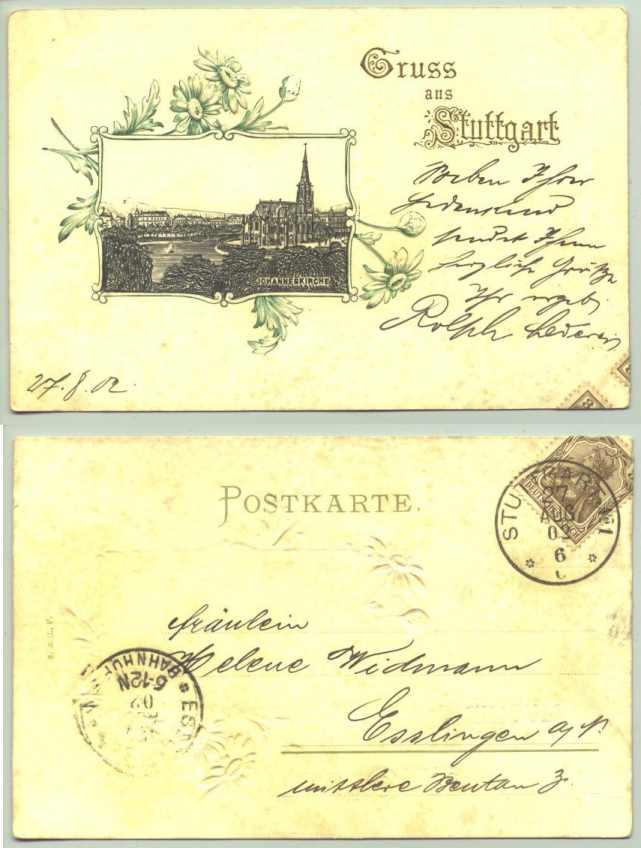 Gruss
aus
Stuttgart
Ihrer
sendet Ihnen
herzliche Grüße
Ihr ergeb.
Rolph
JOHANNESKIRCHE
27.8.02.
POSTKARTE.
STUTTGART No 1
27
AUG
02
6
Fräulein
Helene Widmann
Esslingen a/N.
mittlere Beutau 3.
ESS
BAHNHOF
6-12N
02